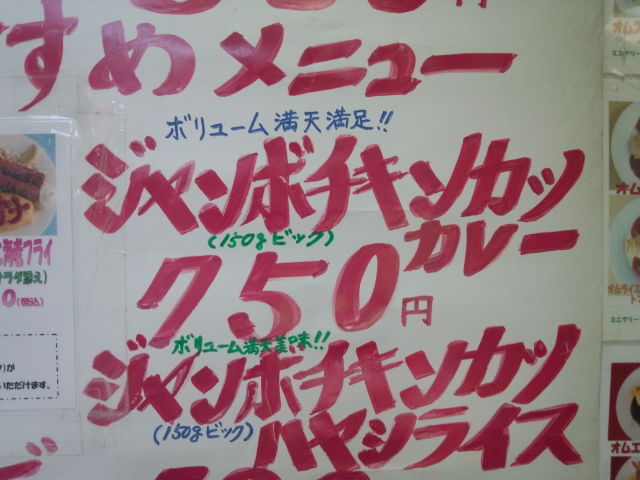 すすめメニュー
ボリューム満天満足!!
ジャンボチキンカツ
(150gビック)
カレー
750円
ボリューム満天美味!!
ジャンボチキンカツ
(150gビック)
ハヤシライス
海老フライ
サラダ添え)
0(税込)
が
いただけます。
ミニグリー
オム
オムライス
ミニグリー
オムエ